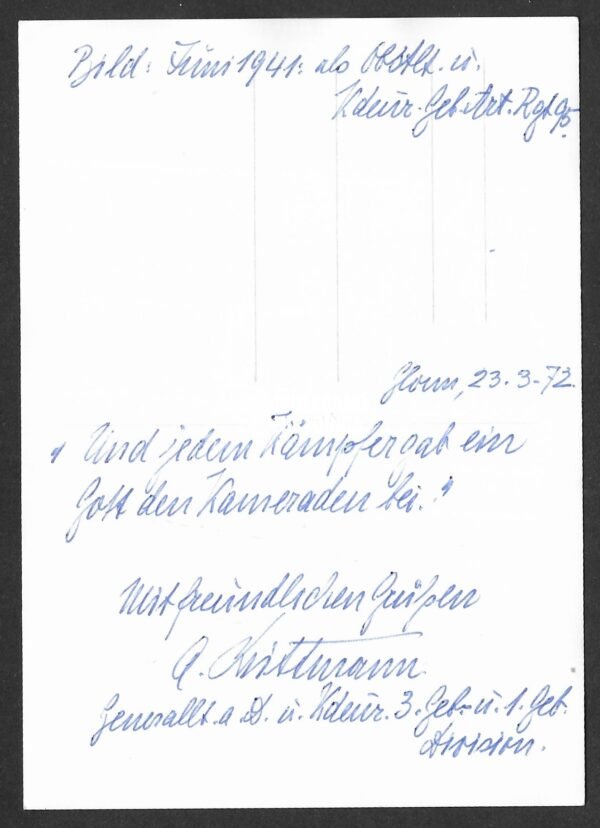 Bild: Juni 1941: als Obstlt. u.
Kdeur. Geb. Art. Rgt. 95
Glonn, 23.3-72.
"Und jedem Kämpfer gab ein
Gott den Kameraden bei."
Mit freundlichen Grüßen
A. Wittmann
Generallt. a D. u. Kdeur. 3. Geb- u. 1. Geb.
Division.